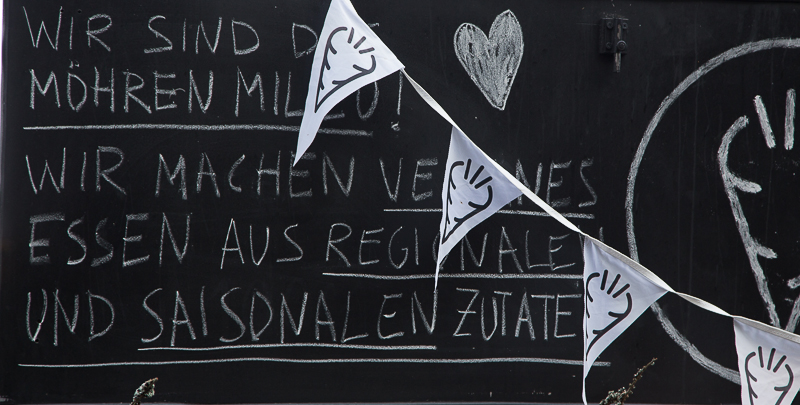 WIR SIND
MÖHREN
WIR MACHEN
ESSEN AUS REGIONALEN
UND SAISONALEN ZUTATE